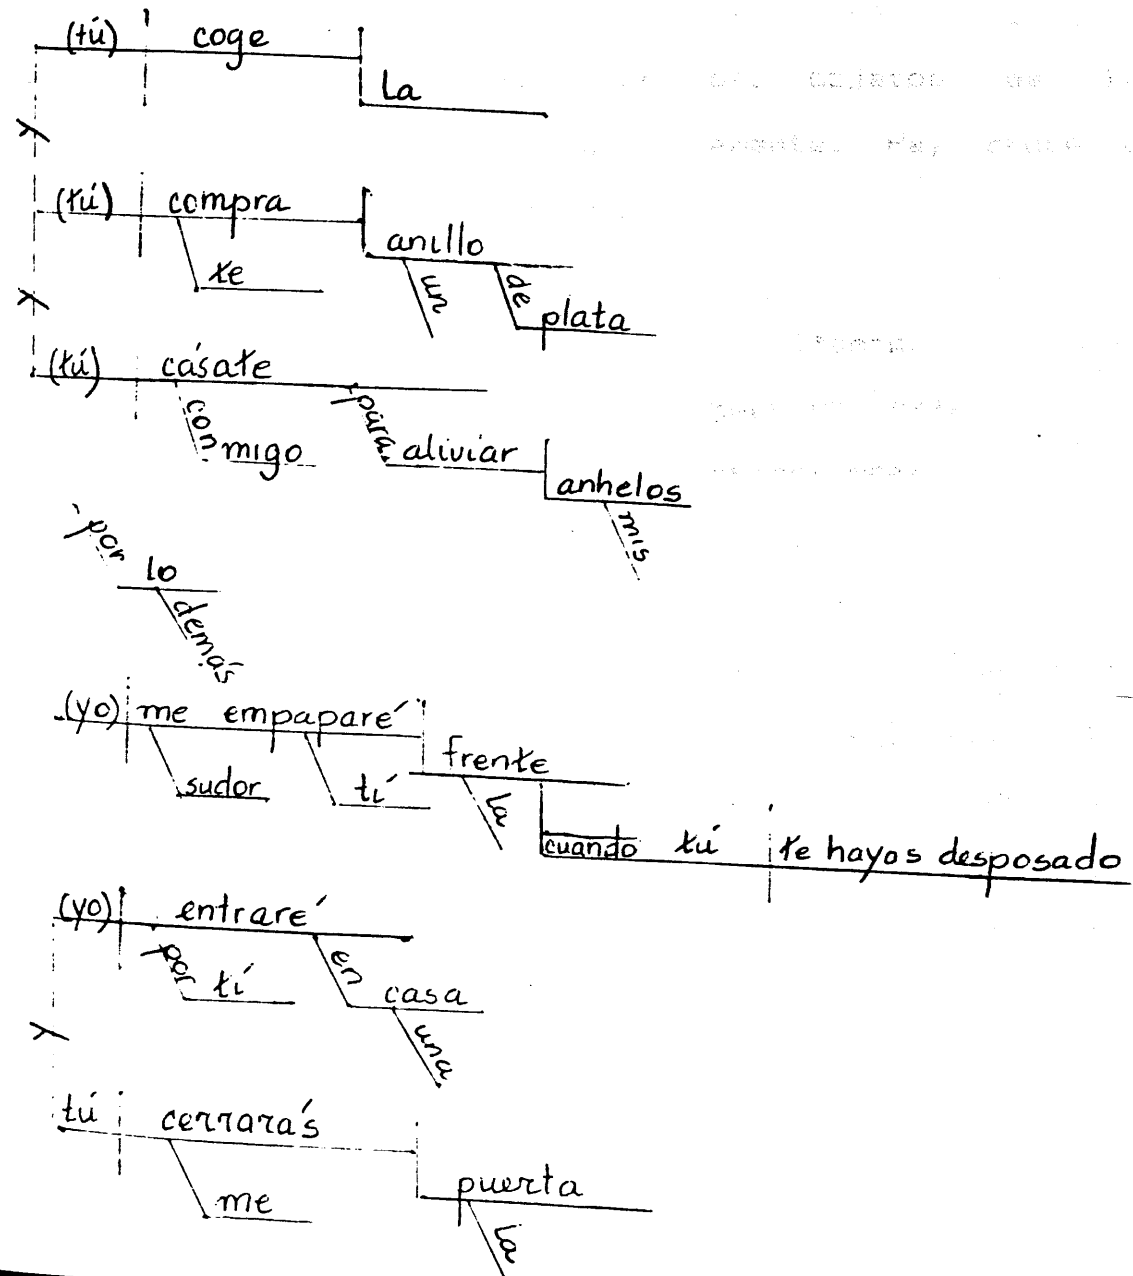 (tú) coge
La
y
(tú) compra
te
anillo
un
de
plata
y
(tú) cásate
con migo
para aliviar
anhelos
mis
por
lo
demás
(yo) me empaparé
sudor
tí
frente
la
cuando tú te hayas desposado
(yo) entraré
por tí
en
casa
una
y
tú cerrarás
me
puerta
la